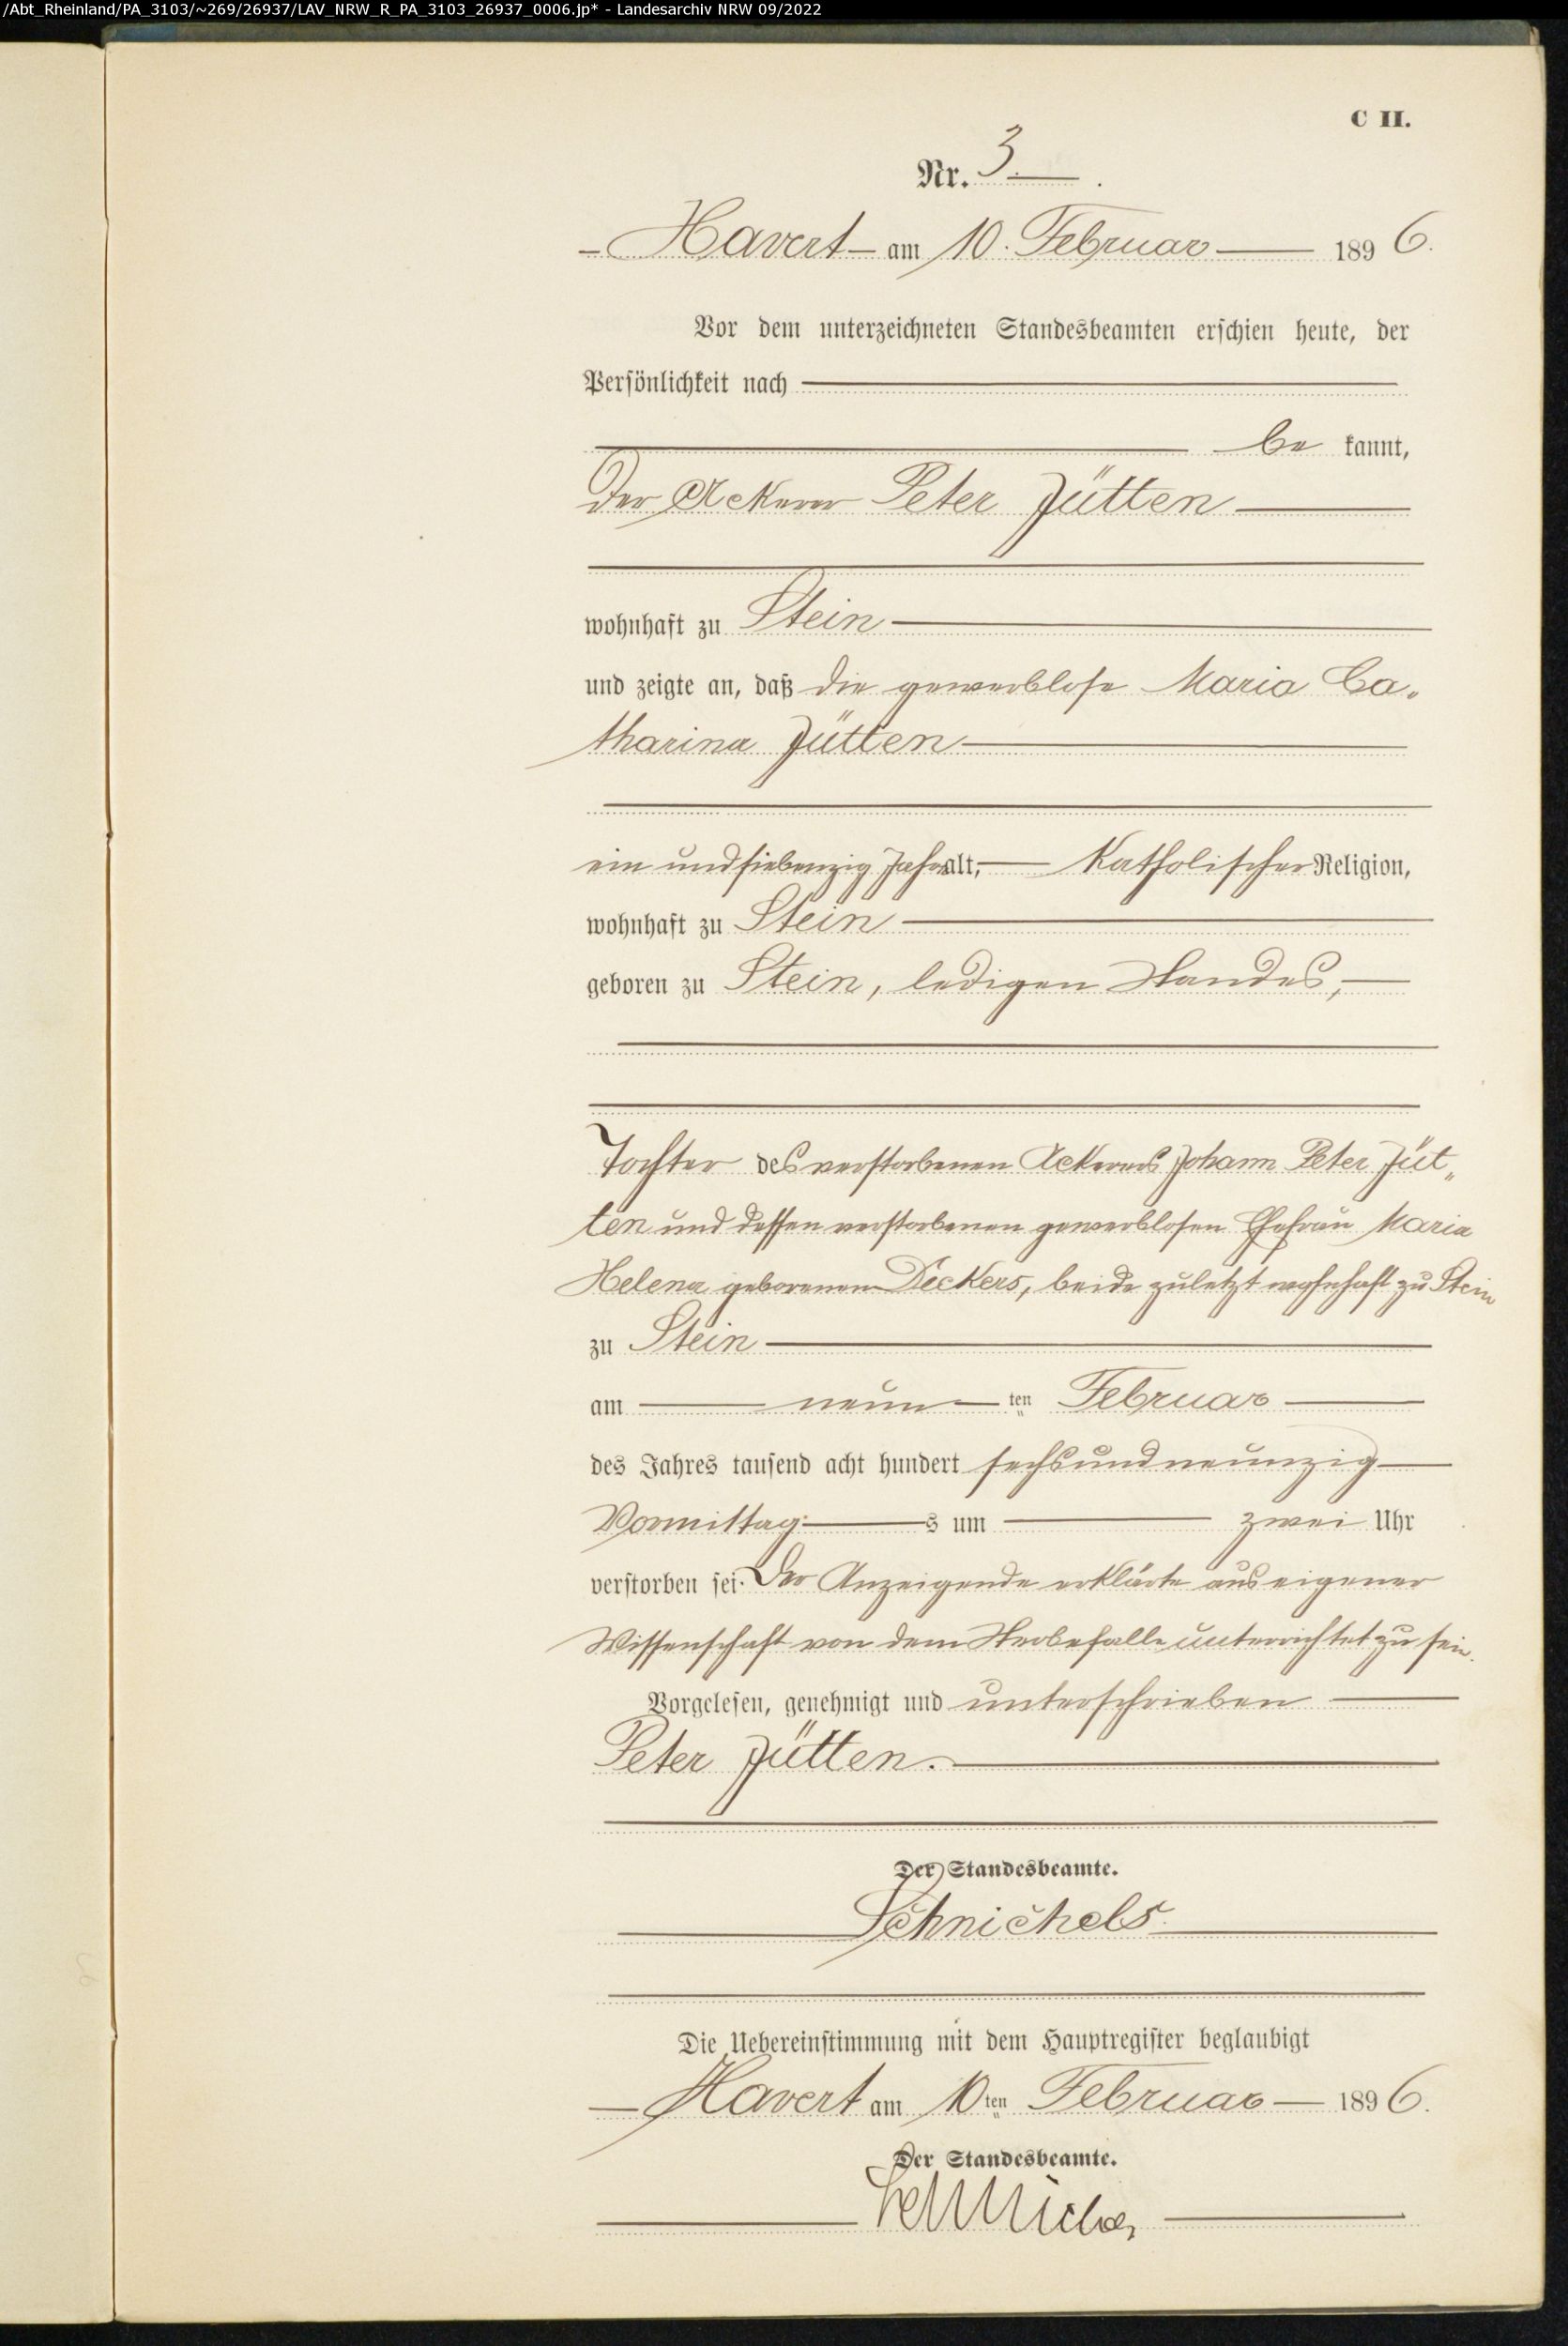 /Abt_Rheinland/PA_3103/~269/26937/LAV_NRW_R_PA_3103_26937_0006.jp* - Landesarchiv NRW 09/2022
C II.
Nr. 3.
Havert am 10. Februar 1896.
Vor dem unterzeichneten Standesbeamten erschien heute, der
Persönlichkeit nach
be kannt,
der Ackerer Peter Jütten
wohnhaft zu Stein
und zeigte an, daß die gewerblose Maria Ca-
tharina Jütten
ein und siebenzig Jahre alt, katholischer Religion,
wohnhaft zu Stein
geboren zu Stein, ledigen Standes,
Tochter des verstorbenen Ackerers Johann Peter Jüt-
ten und dessen verstorbenen gewerblosen Ehefrau Maria
Helena geborenen Deckers, beide zuletzt wohnhaft zu Stein
zu Stein
am neun ten Februar
des Jahres tausend acht hundert sechsundneunzig
Vormittags um zwei Uhr
verstorben sei. Der Anzeigende erklärte aus eigener
Wissenschaft von dem Sterbefalle unterrichtet zu sein.
Vorgelesen, genehmigt und unterschrieben
Peter Jütten.
Der Standesbeamte.
Schnichels.
Die Uebereinstimmung mit dem Hauptregister beglaubigt
Havert am 10ten Februar 1896.
Der Standesbeamte.
Schnichels